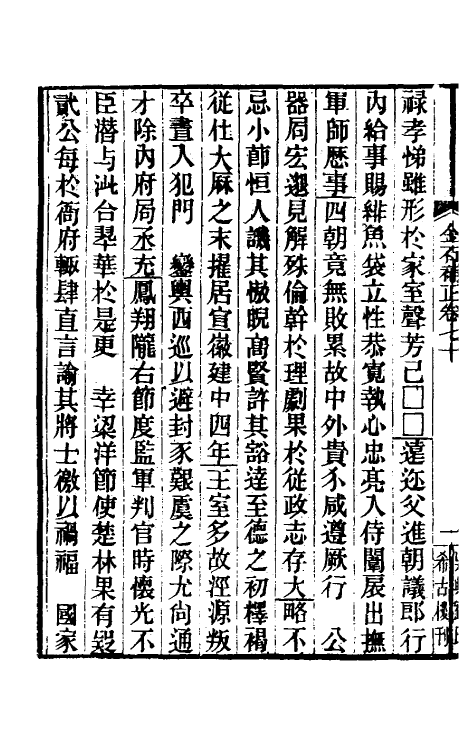 祿孝悌雖形於家室聲芳已□□遠迩父進朝議郎行
內給事賜緋魚袋立性恭寬執心忠亮入侍闈扆出撫
軍師歷事四朝竟無敗累故中外貴不咸遵厥行　公
器局宏邈見解殊倫幹於理劇果於從政志存大略不
忌小節恒人譏其慠睨高賢許其豁達至德之初釋褐
從仕大厤之末擢居宣徽建中四年王室多故涇源叛
卒晝入犯門　鑾輿西巡以避封豕艱虞之際尤尚通
才除內府局丞充鳳翔隴右節度監軍判官時懷光不
臣潛与泚合翠華於是更　幸梁洋節使楚林果有異
貳公每於衙府輙肆直言諭其將士徼以禍福　國家
金石補正卷七十
希古樓刊